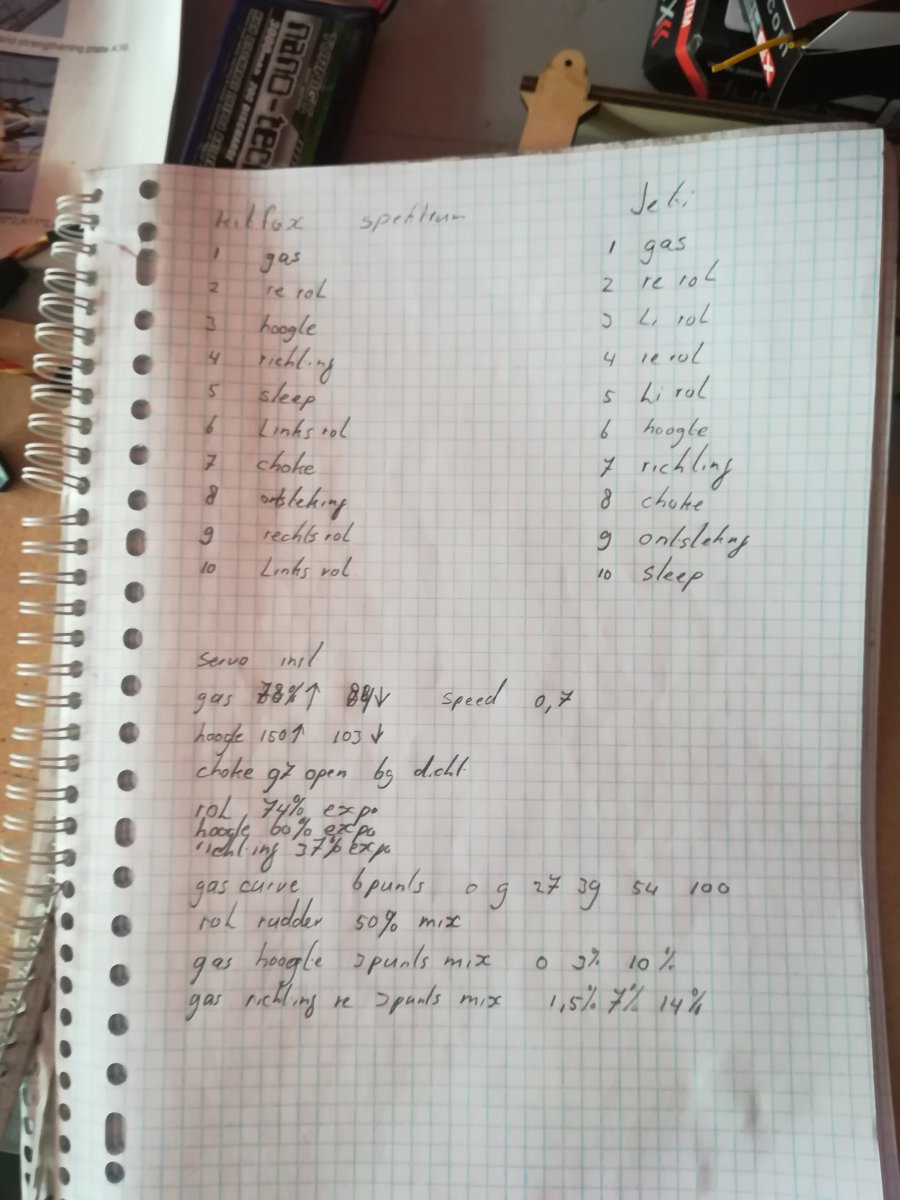 nd strengthening plate A.18
nano-tech
spektrum
Jeti
1 gas
2 re rol
3 hoogte
4 richting
5 sleep
6 Links rol
7 choke
8 ontsteking
9 rechts rol
10 Links rol
1 gas
2 re rol
3 Li rol
4 re rol
5 Li rol
6 hoogte
7 richting
8 choke
9 ontsteking
10 sleep
servo inst
gas ↑ ↓ speed 0,7
hoogte 150↑ 103↓
choke 97 open 69 dicht
rol 74% expo
hoogte 60% expo
richting 37% expo
gas curve 6punts 0 9 27 39 54 100
rol rudder 50% mix
gas hoogte 3punts mix 0 3% 10%
gas richting re 3punts mix 1,5% 7% 14%